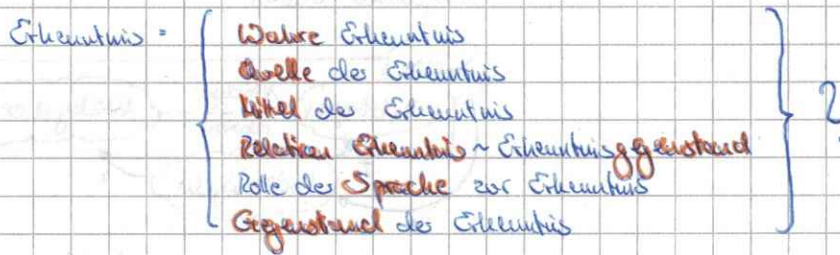 Erkenntnis = { Wahre Erkenntnis
Quelle der Erkenntnis
Mittel der Erkenntnis
Relation Erkenntnis ~ Erkenntnisgegenstand
Rolle der Sprache zur Erkenntnis
Gegenstand der Erkenntnis }